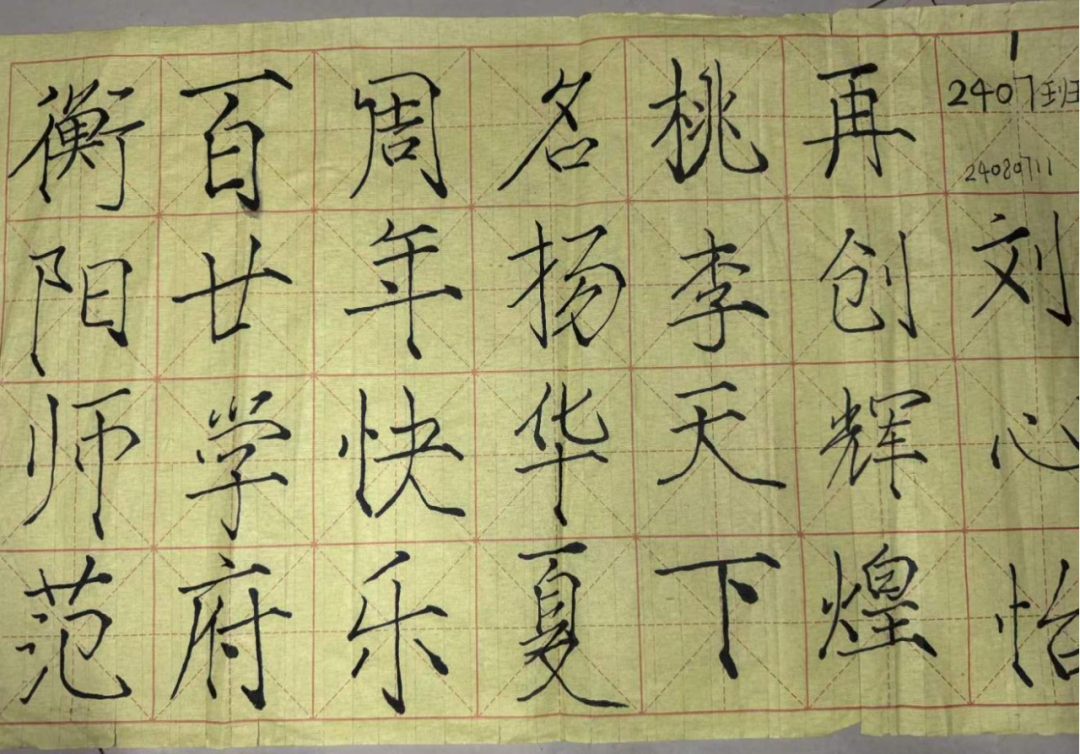 衡阳师范
百廿学府
周年快乐
名扬华夏
桃李天下
再创辉煌
2407班
24080711
刘心怡